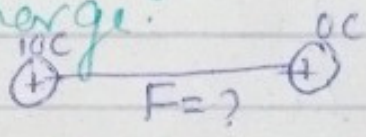 harge.
10C 0C
+ +
F=?